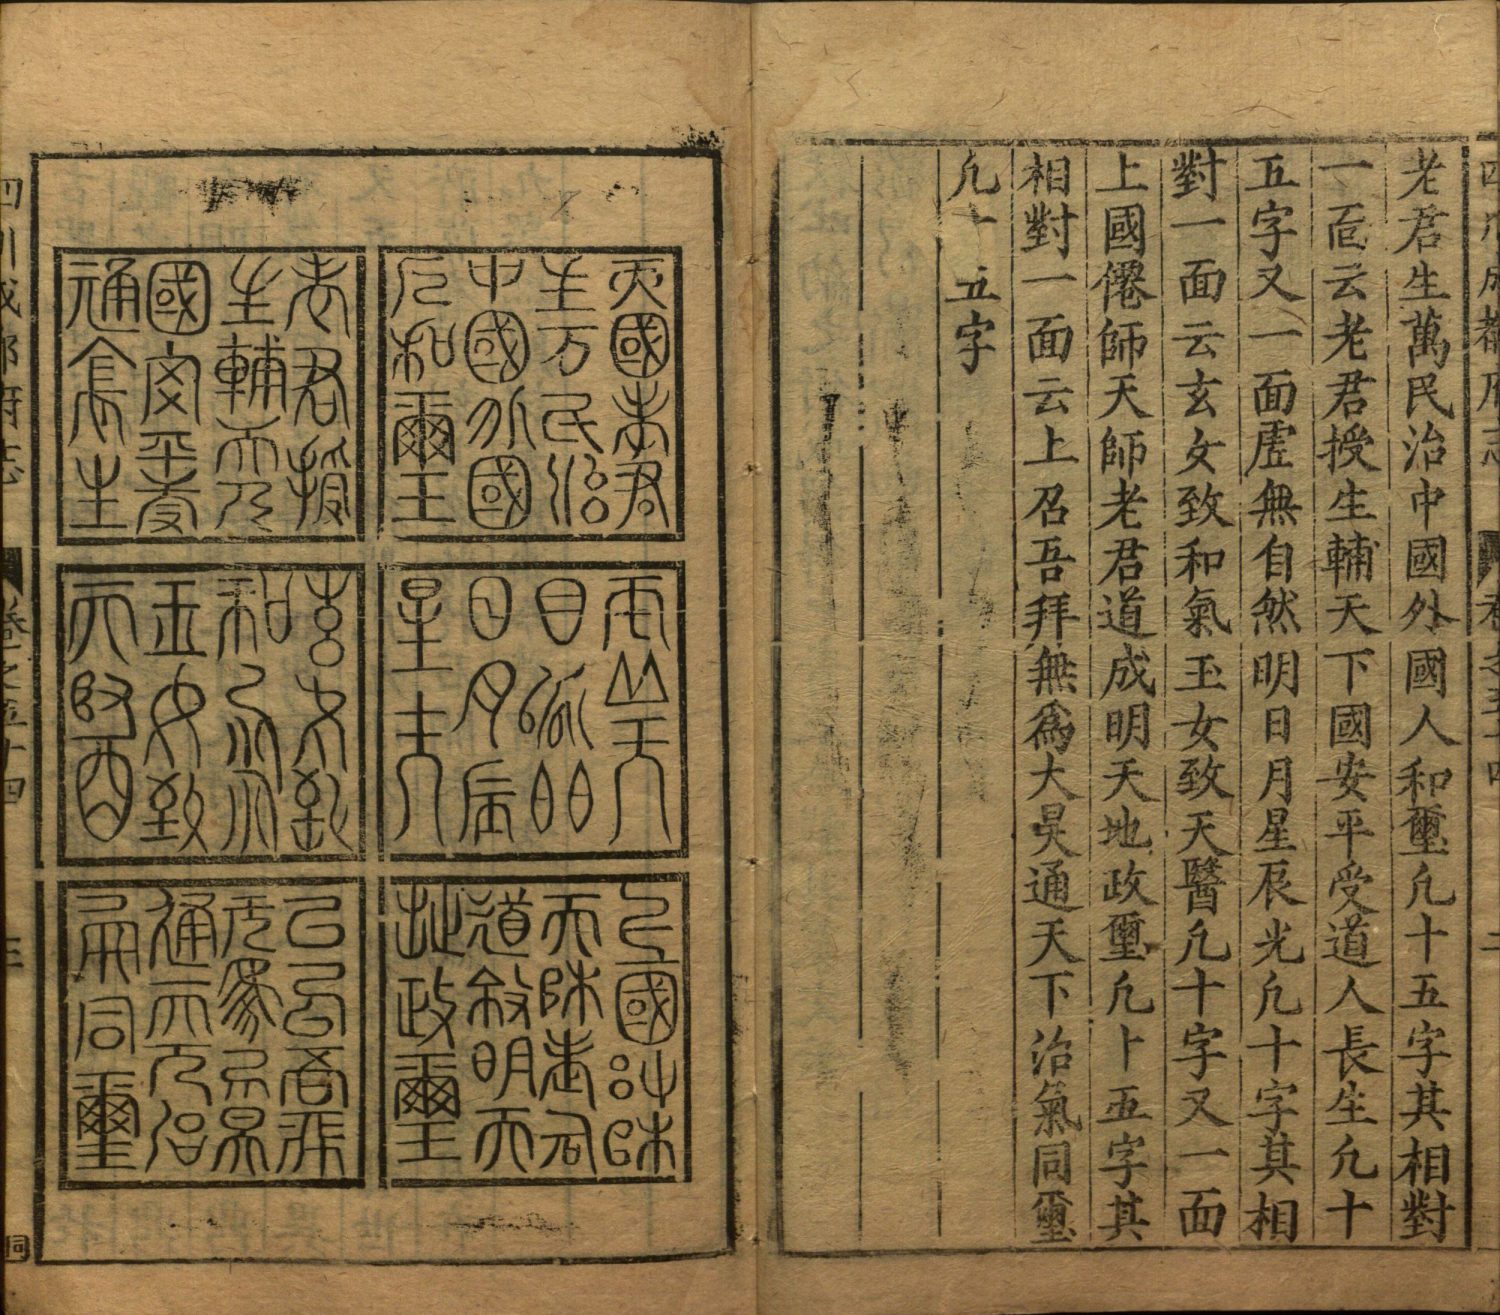 老君生萬民治中國外國人和璽凢十五字其相對
一面云老君授生輔天下國安平受道人長生凢十
五字又一面虗無自然明日月星辰光凢十字其相
對一面云玄女致和氣玉女致天醫凢十字又一面
上國僊師天師老君道成明天地政璽凢十五字其
相對一面云上召吾拜無為大昊通天下治氣同璽
凢十五字
國老君
生万民治
中國外國
人和璽
老君授
生輔天下
國安平受
通 長生
日月辰
星
和
玉女致
天醫
國 師
天師老君
道 明天
地政璽
上召吾拜
通天下治
同璽
四川成都府志
卷之五十四
三